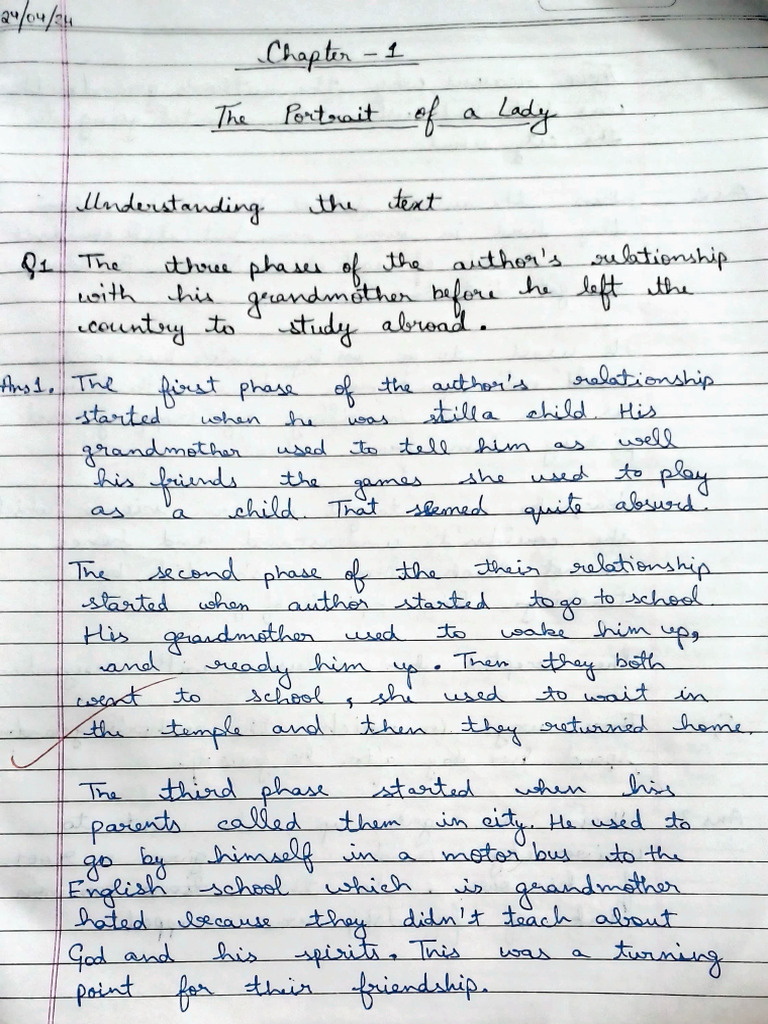 24/04/24
Chapter - 1
The Portrait of a Lady
Understanding the text
Q1 The three phases of the author's relationship
with his grandmother before he left the
country to study abroad.
Ans1. The first phase of the author's relationship
started when he was still a child. His
grandmother used to tell him as well
his friends the games she used to play
as a child. That seemed quite absurd.
The second phase of the their relationship
started when author started to go to school.
His grandmother used to wake him up,
and ready him up. Then they both
went to school, she used to wait in
the temple and then they returned home.
The third phase started when his
parents called them in city. He used to
go by himself in a motor bus to the
English school which is grandmother
hated, because they didn't teach about
God and his spirits. This was a turning
point for their friendship.